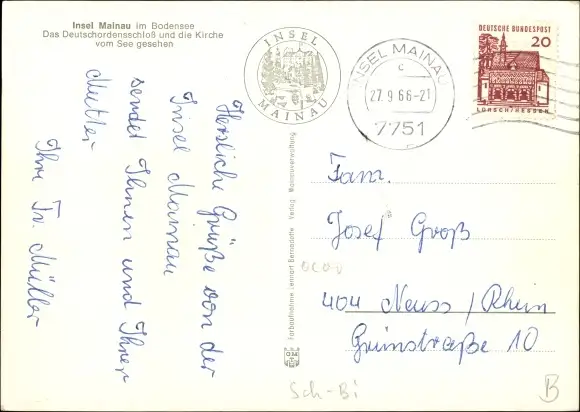 Insel Mainau im Bodensee
Das Deutschordensschloß und die Kirche
vom See gesehen
INSEL
MAINAU
INSEL MAINAU
c
27.9.66-21
7751
DEUTSCHE BUNDESPOST
20
LORSCH/HESSEN
Herzliche Grüße von der
Insel Mainau
sendet Ihnen und Ihrer
Mutter
Ihre Fr. Müller
Farbaufnahme Lennart Bernadotte Verlag Mainauverwaltung
Fam.
Josef Groß
404 Neuss / Rhein
Grünstraße 10
Sch-Bi
B